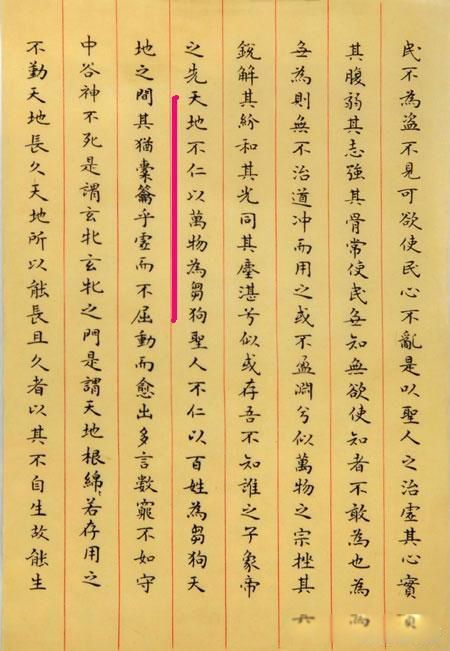 民不為盜不見可欲使民心不亂是以聖人之治虛其心實
其腹弱其志強其骨常使民無知無欲使知者不敢為也為
無為則無不治道冲而用之或不盈淵兮似萬物之宗挫其
銳解其紛和其光同其塵湛兮似或存吾不知誰之子象帝
之先天地不仁以萬物為芻狗聖人不仁以百姓為芻狗天
地之間其猶橐籥乎虛而不屈動而愈出多言數窮不如守
中谷神不死是謂玄牝玄牝之門是謂天地根綿〻若存用之
不勤天地長久天地所以能長且久者以其不自生故能生